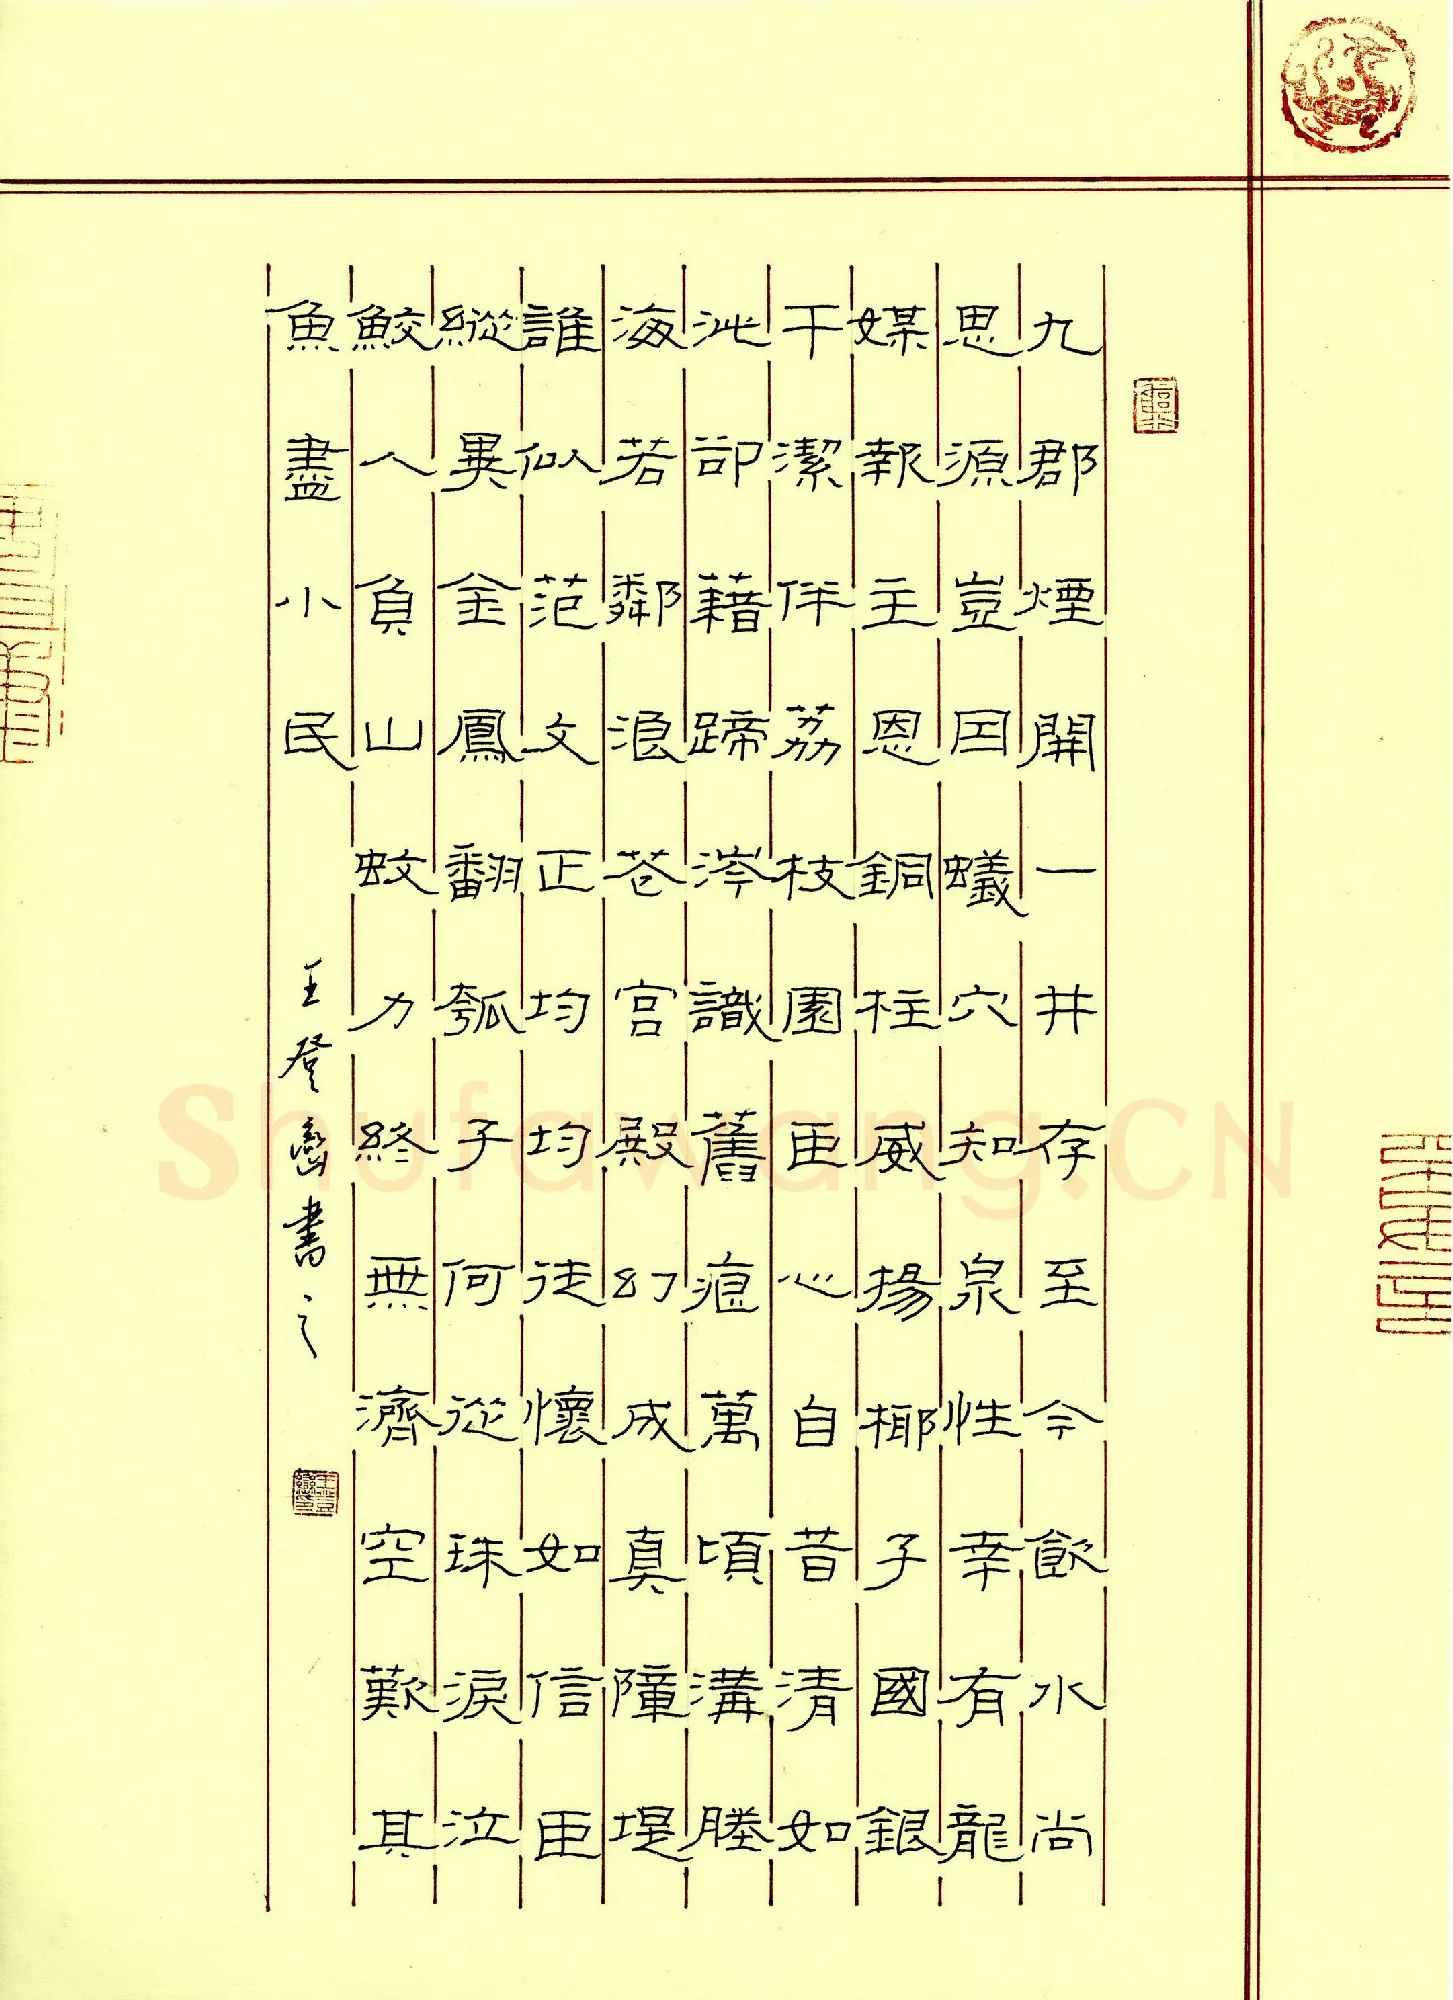 九郡煙開一井存至今飲水尚
思源豈因蟻穴知泉性幸有龍
媒報主恩銅柱威揚椰子國銀
干潔伴荔枝園臣心自昔清如
沚卻藉蹄涔識舊痕萬頃溝塍
海若鄰浪苍宮殿幻成真障堤
誰似范文正均均徒懷如信臣
縱異金鳳翻瓠子何從珠淚泣
鮫人負山蚊力終無濟空歎其
魚盡小民
王登巒書之
Shufawang.CN